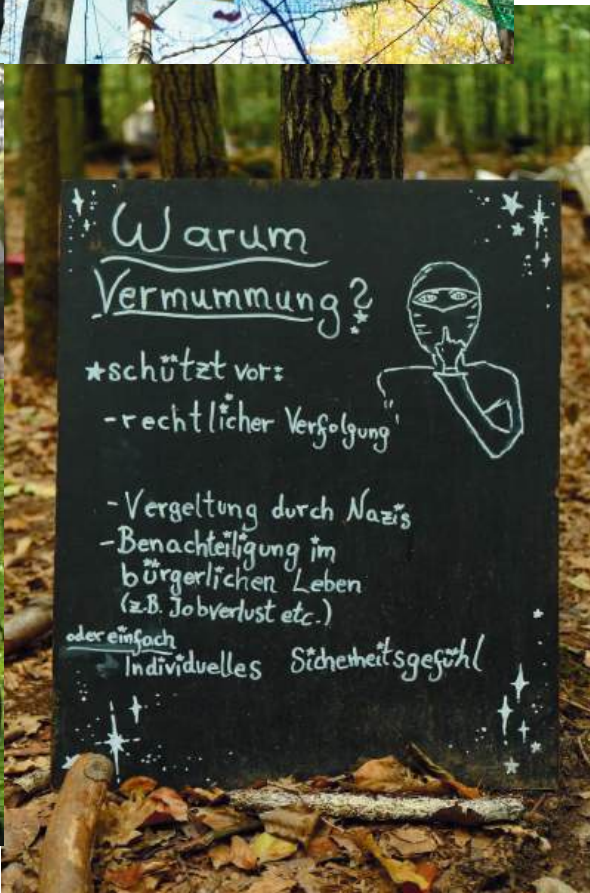 Warum
Vermummung?
*schützt vor:
-rechtlicher Verfolgung"
-Vergeltung durch Nazis
-Benachteiligung im
bürgerlichen Leben
(z.B. Jobverlust etc.)
oder einfach
Individuelles Sicherheitsgefühl